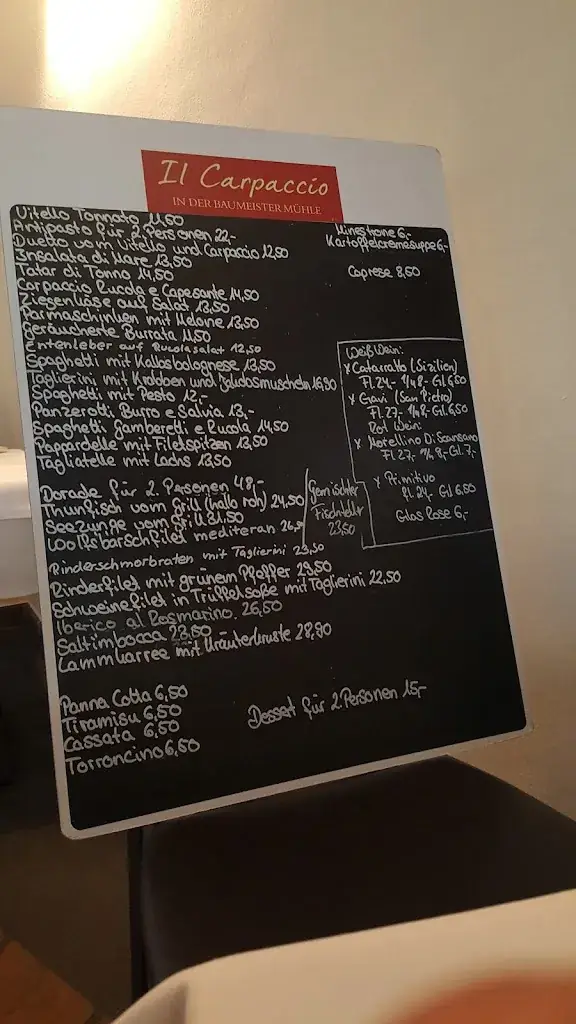 Il Carpaccio
IN DER BAUMEISTER MÜHLE
Vitello Tonnato 11,50
Antipasto für 2 Personen 22,-
Duetto vom Vitello und Carpaccio 12,50
Insalata di Mare 13,50
Tatar di Tonno 14,50
Carpaccio Rucola e Capesante 14,50
Ziegenkäse auf Salat 13,50
Parmaschinken mit Melone 13,50
Geräucherte Burrata 11,50
Entenleber auf Rucolasalat 12,50
Spaghetti mit Kalbsbolognese 13,50
Taglierini mit Krabben und Jakobsmuscheln 16,90
Spaghetti mit Pesto 12,-
Panzerotti Burro e Salvia 13,-
Spaghetti Gamberetti e Rucola 14,50
Pappardelle mit Filetspitzen 13,50
Tagliatelle mit Lachs 13,50
Minestrone 6,-
Kartoffelcremesuppe 6,-
Caprese 8,50
Weiß Wein:
x Catarratto (Sizilien)
Fl. 24,- 1/4 8,- Gl 6,50
x Gavi (San Pietro)
Fl. 27,- 1/4 8,- Gl. 6,50
Rot Wein:
x Morellino Di Scansano
Fl. 27,- 1/4 8,- Gl. 7,-
x Primitivo
Fl. 24,- Gl 6,50
Glas Rose 6,-
Dorade für 2 Personen 48,-
Thunfisch vom Grill (halb roh) 24,50
Seezunge vom Grill 31,50
Wolfsbarschfilet mediteran
Gemischter
Fischteller
23,50
Rinderschmorbraten mit Taglierini 23,50
Rinderfilet mit grünem Pfeffer 29,50
Schweinefilet in Trüffelsoße mit Taglierini 22,50
Iberico al Rosmarino 26,50
Saltimbocca 23,50
Lammkarree mit Kräuterkruste 28,90
Panna Cotta 6,50
Tiramisu 6,50
Cassata 6,50
Torroncino 6,50
Dessert für 2 Personen 15,-